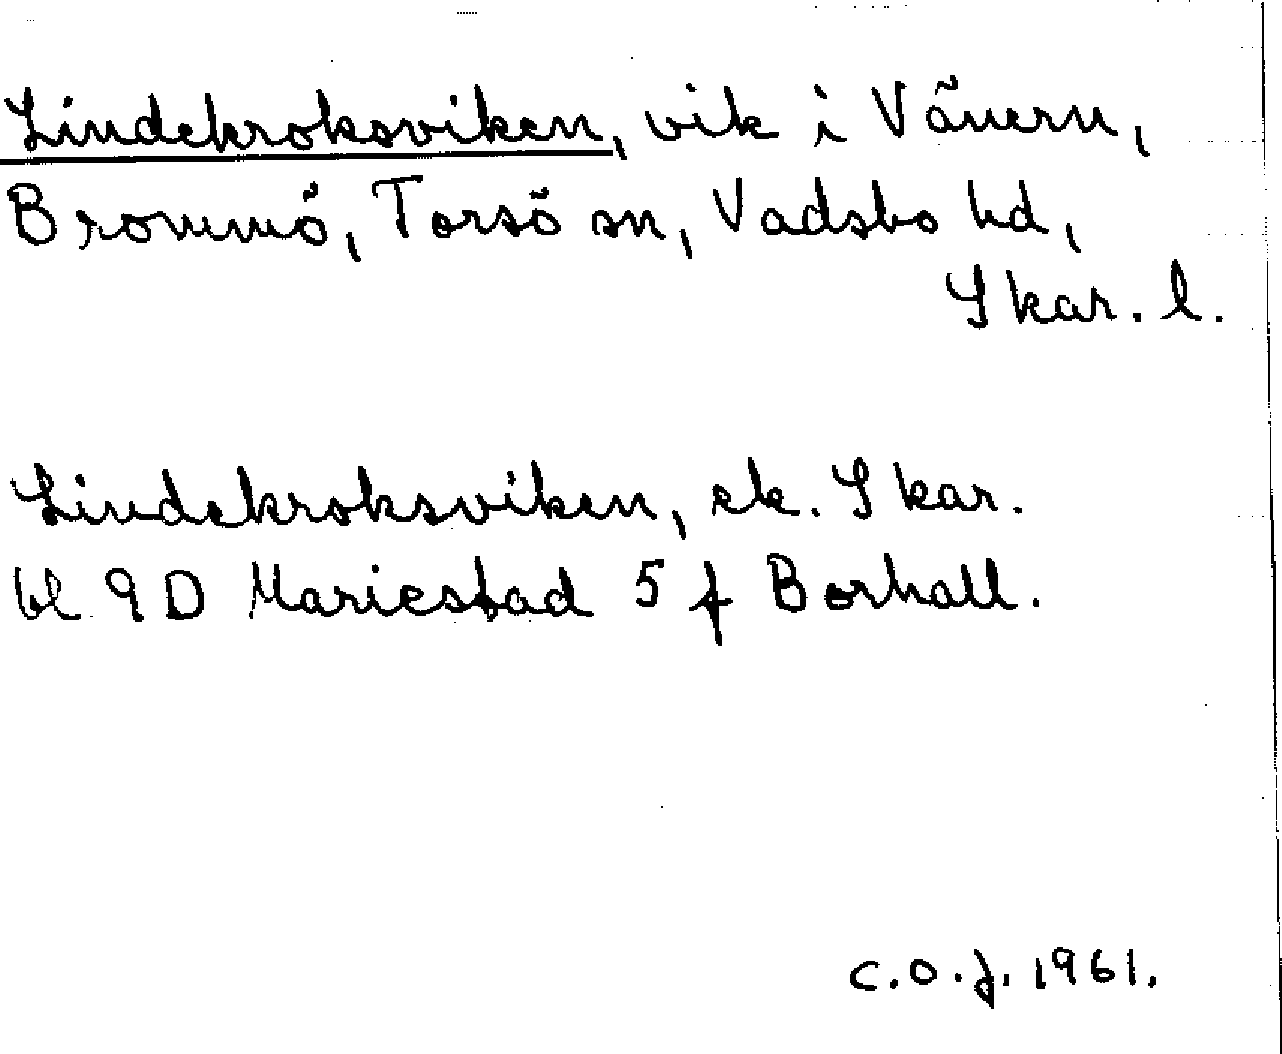 Lindekroksviken, vik i Vänern,
Brommö, Torsö sn, Vadsbo hd,
Skar. l.
Lindekroksviken, ek. Skar.
bl 9D Mariestad 5 f Borhall.
C.O.J. 1961.